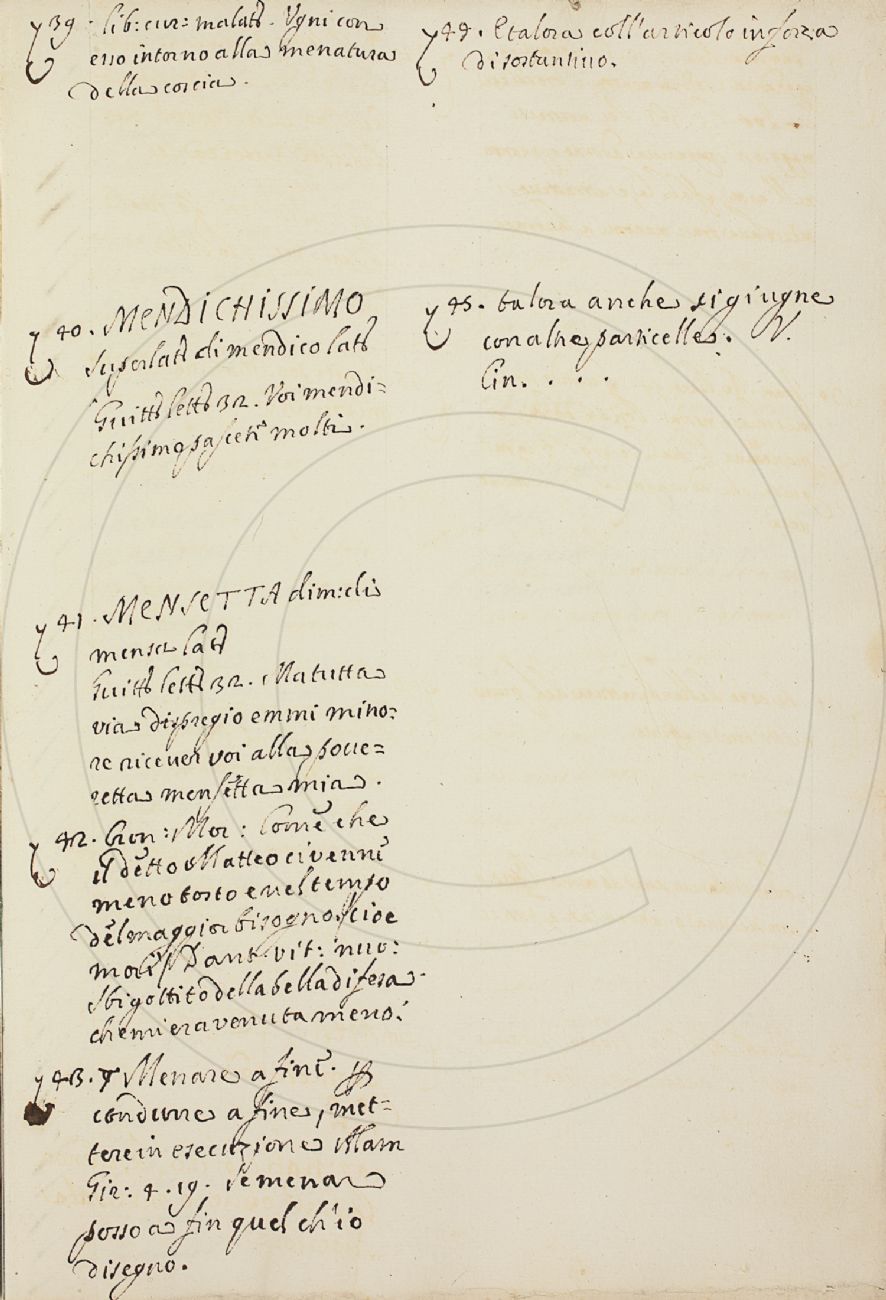 39. lib: cur: malatt. Ugni con
esso intorno alla menatura
della coscia.
40. MENDICHISSIMO
Superlatt di mendico latt
Guitt lett 32. Voi mendi=
chissimo pascete molti.
41. MENSETTA dim: di
mensa latt
Guitt lett 32. Ma tutta
via dispregio emmi mino=
re ricever voi alla pove=
retta mensetta mia.
42. Cron: Mor: Come che
il detto Matteo ci venne
meno tosto e nel tempo
del maggior bisogno, cioè
morì. Dant vit: nuo:
Sbigottito della bella difesa
che mi era venuta meno.
43. Menare a fine. p
condurre a fine, met=
tere in esecuzione Alam
Gir: 4. 19. Se menar
posso a fin quel ch'io
disegno.
44. E talora coll'articolo in forza
di sostantivo.
45. talora anche si giugne
con altre particelle. V.
Cin. . . .